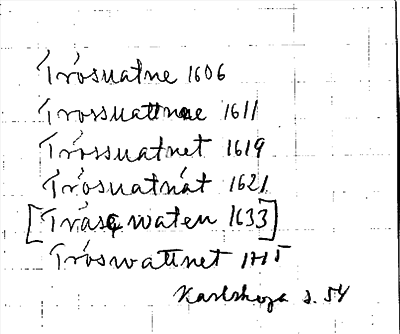 Trösuatne 1606
Trossuattnæ 1611
Trössuatnet 1619
Trösuatnåt 1621
[Tråsęwaten 1633]
Tröswattnet 1715
Karlskoga s. 54